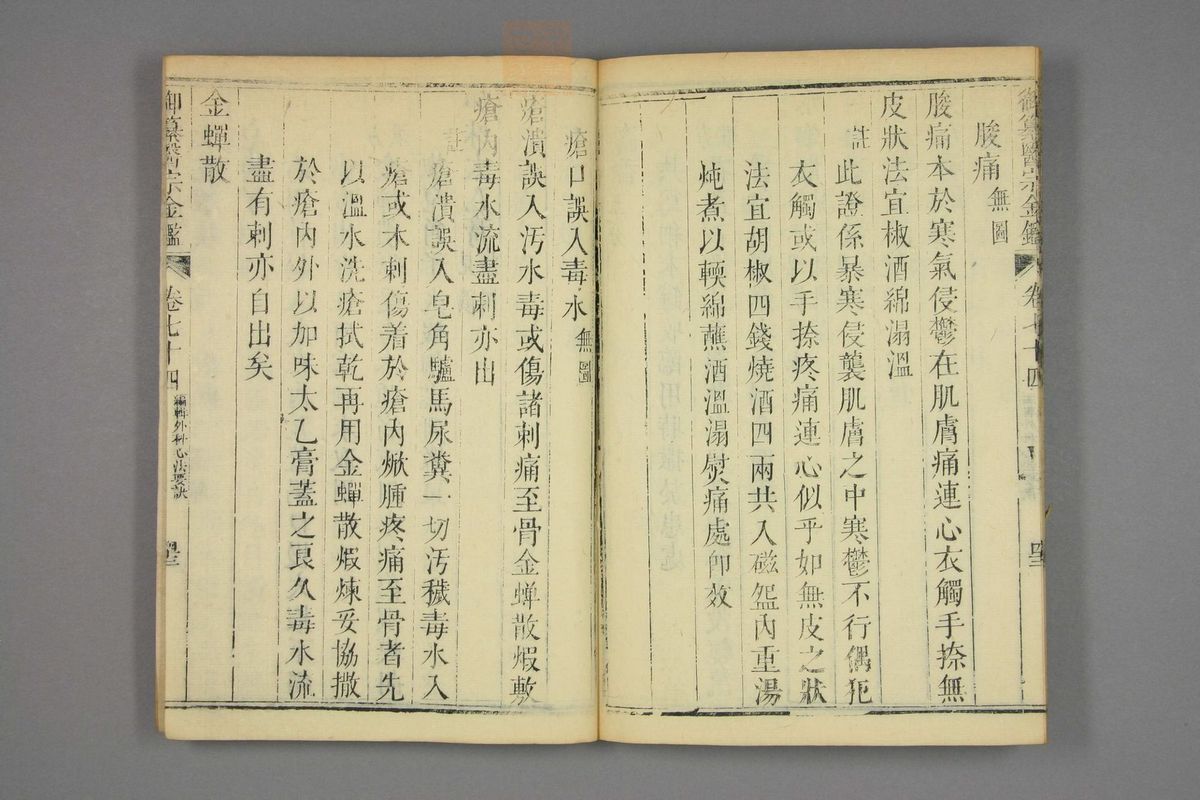 御纂醫宗金鑑 卷七十四
朘痛 無圖
朘痛本於寒氣侵鬱在肌膚痛連心衣觸手捺無
皮狀法宜椒酒綿溻溫
註 此證係暴寒侵襲肌膚之中寒鬱不行偶犯
衣觸或以手捺疼痛連心似乎如無皮之狀
法宜胡椒四錢燒酒四兩共入磁盌內重湯
炖煮以輭綿蘸酒溫溻熨痛處卽效
瘡口誤入毒水 無圖
瘡潰誤入汚水毒或傷諸刺痛至骨金蟬散煆敷
瘡內毒水流盡刺亦出
註 瘡潰誤入皂角驢馬尿糞一切汚穢毒水入
瘡或木刺傷着於瘡內焮腫疼痛至骨者先
以溫水洗瘡拭乾再用金蟬散煆煉妥協撒
於瘡內外以加味太乙膏蓋之良久毒水流
盡有刺亦自出矣
金蟬散
御纂醫宗金鑑 卷七十四 編輯外科心法要訣